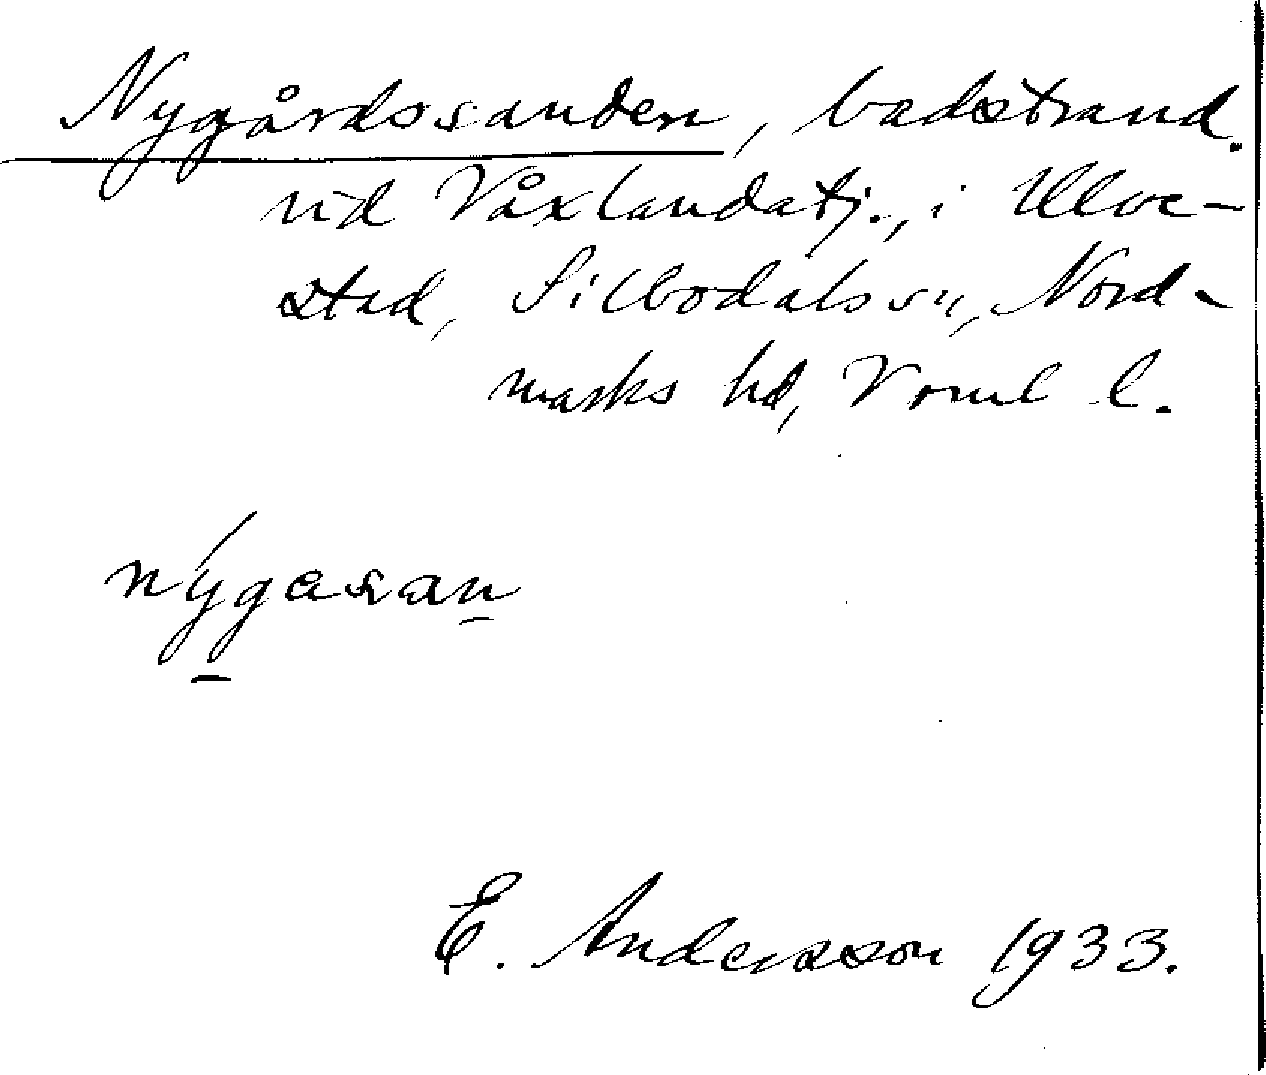 Nygårdssanden, badstrand
vid Våxlandatj., i Ulve-
stad, Silbodals sn, Nord-
marks hd, Vrml l.
nýgasan
E. Andersson 1933.